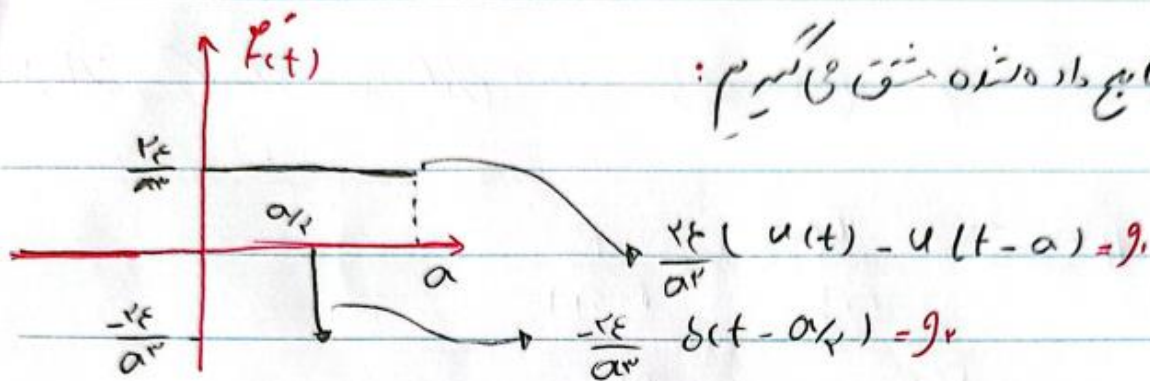 f'(t)
ابع داده شده مشتق می گیریم :
۲٤/a۳
a/۲
a
۲٤/a۳ ( u(t) - u(t-a) = g۱
-۲٤/a۳
-۲٤/a۳ δ(t - a/۲) = g۲